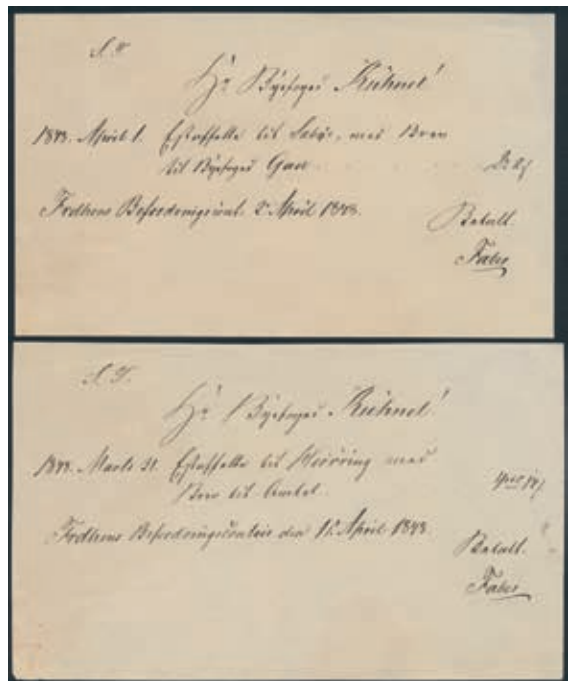 S. T.
Hr Byefoged Kühnel!
1848. April 1. Estaffette til Sæbye, med Brev
til Byefoged Gad
Frdhvns Befordringscont. 2 April 1848.
Betalt.
Faber
S. T.
Hr Byefoged Kühnel!
1848. Marts 31. Estaffette til Hjørring med
Brev til Amtet.
Frdhvns Befordringscontoir den 1 April 1848.
Betalt.
Faber